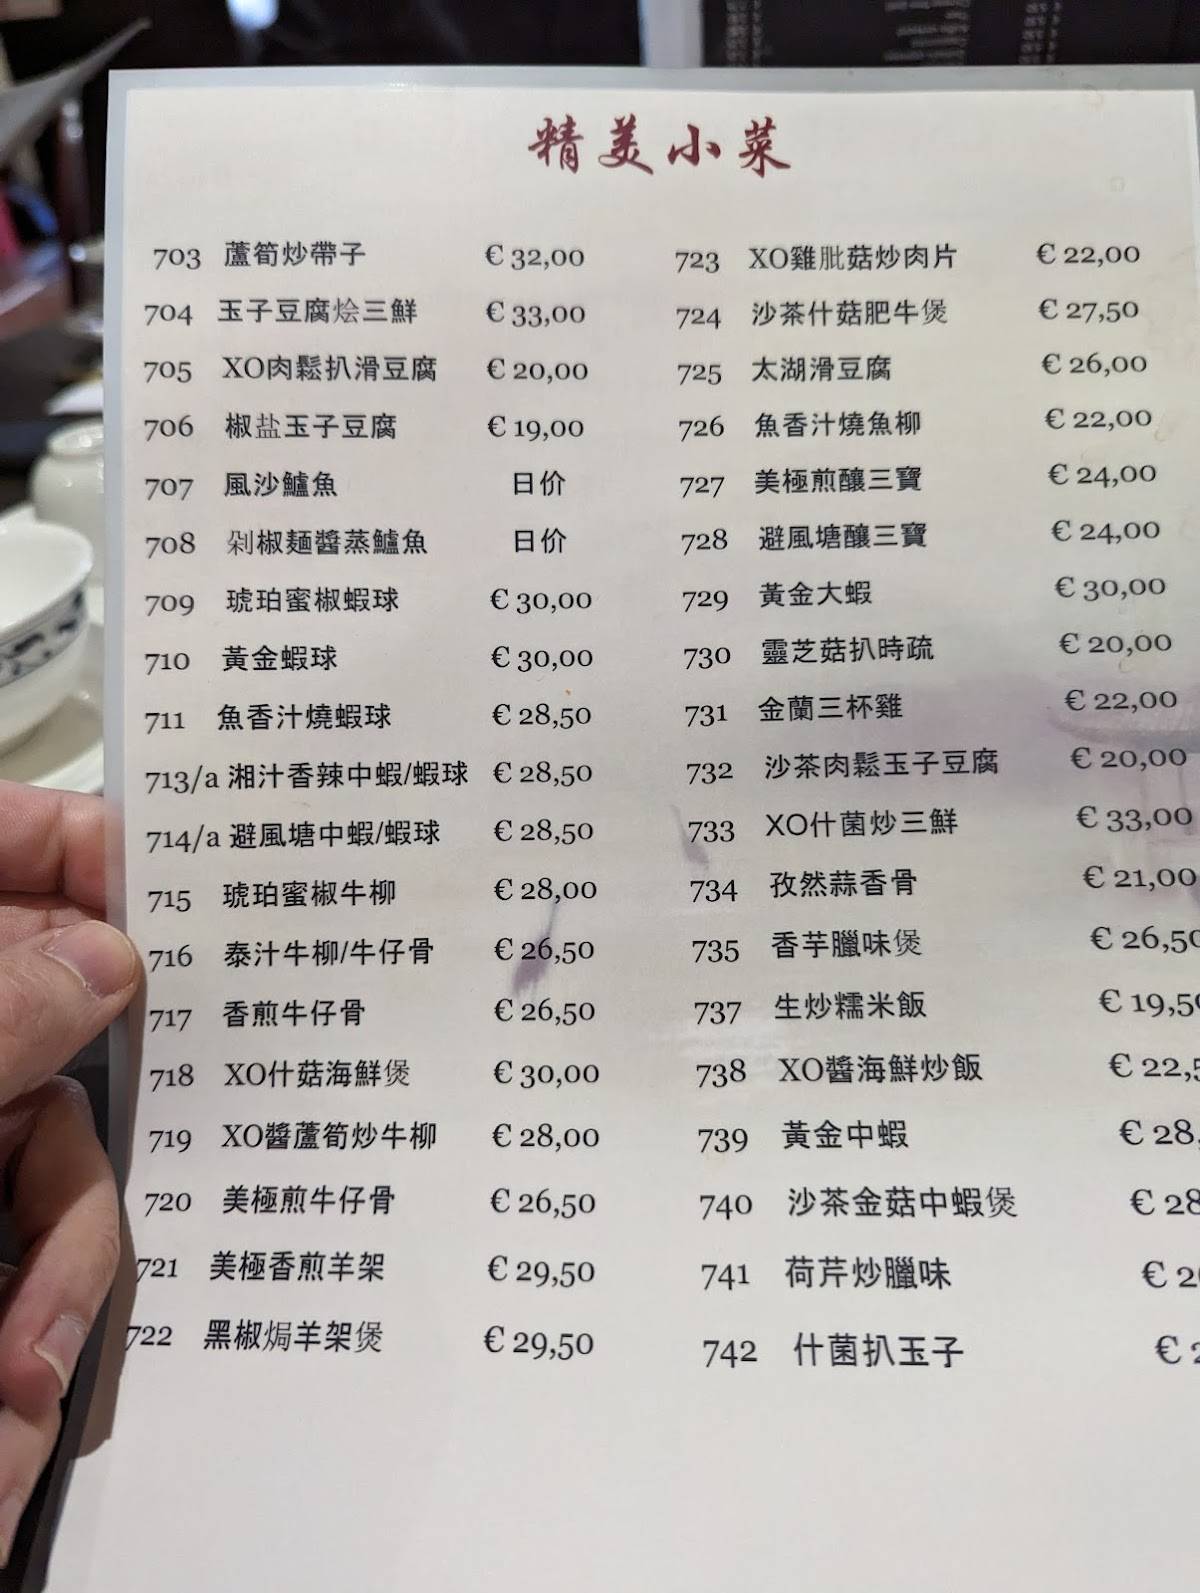 精美小菜
703 蘆筍炒帶子 € 32,00
704 玉子豆腐烩三鮮 € 33,00
705 XO肉鬆扒滑豆腐 € 20,00
706 椒盐玉子豆腐 € 19,00
707 風沙鱸魚 日价
708 剁椒麵醬蒸鱸魚 日价
709 琥珀蜜椒蝦球 € 30,00
710 黃金蝦球 € 30,00
711 魚香汁燒蝦球 € 28,50
713/a 湘汁香辣中蝦/蝦球 € 28,50
714/a 避風塘中蝦/蝦球 € 28,50
715 琥珀蜜椒牛柳 € 28,00
716 泰汁牛柳/牛仔骨 € 26,50
717 香煎牛仔骨 € 26,50
718 XO什菇海鮮煲 € 30,00
719 XO醬蘆筍炒牛柳 € 28,00
720 美極煎牛仔骨 € 26,50
721 美極香煎羊架 € 29,50
722 黑椒焗羊架煲 € 29,50
723 XO雞肶菇炒肉片 € 22,00
724 沙茶什菇肥牛煲 € 27,50
725 太湖滑豆腐 € 26,00
726 魚香汁燒魚柳 € 22,00
727 美極煎釀三寶 € 24,00
728 避風塘釀三寶 € 24,00
729 黃金大蝦 € 30,00
730 靈芝菇扒時疏 € 20,00
731 金蘭三杯雞 € 22,00
732 沙茶肉鬆玉子豆腐 € 20,00
733 XO什菌炒三鮮 € 33,00
734 孜然蒜香骨 € 21,00
735 香芋臘味煲 € 26,50
737 生炒糯米飯 € 19,50
738 XO醬海鮮炒飯 € 22,5
739 黃金中蝦 € 28,
740 沙茶金菇中蝦煲 € 28
741 荷芹炒臘味 € 2
742 什菌扒玉子 €